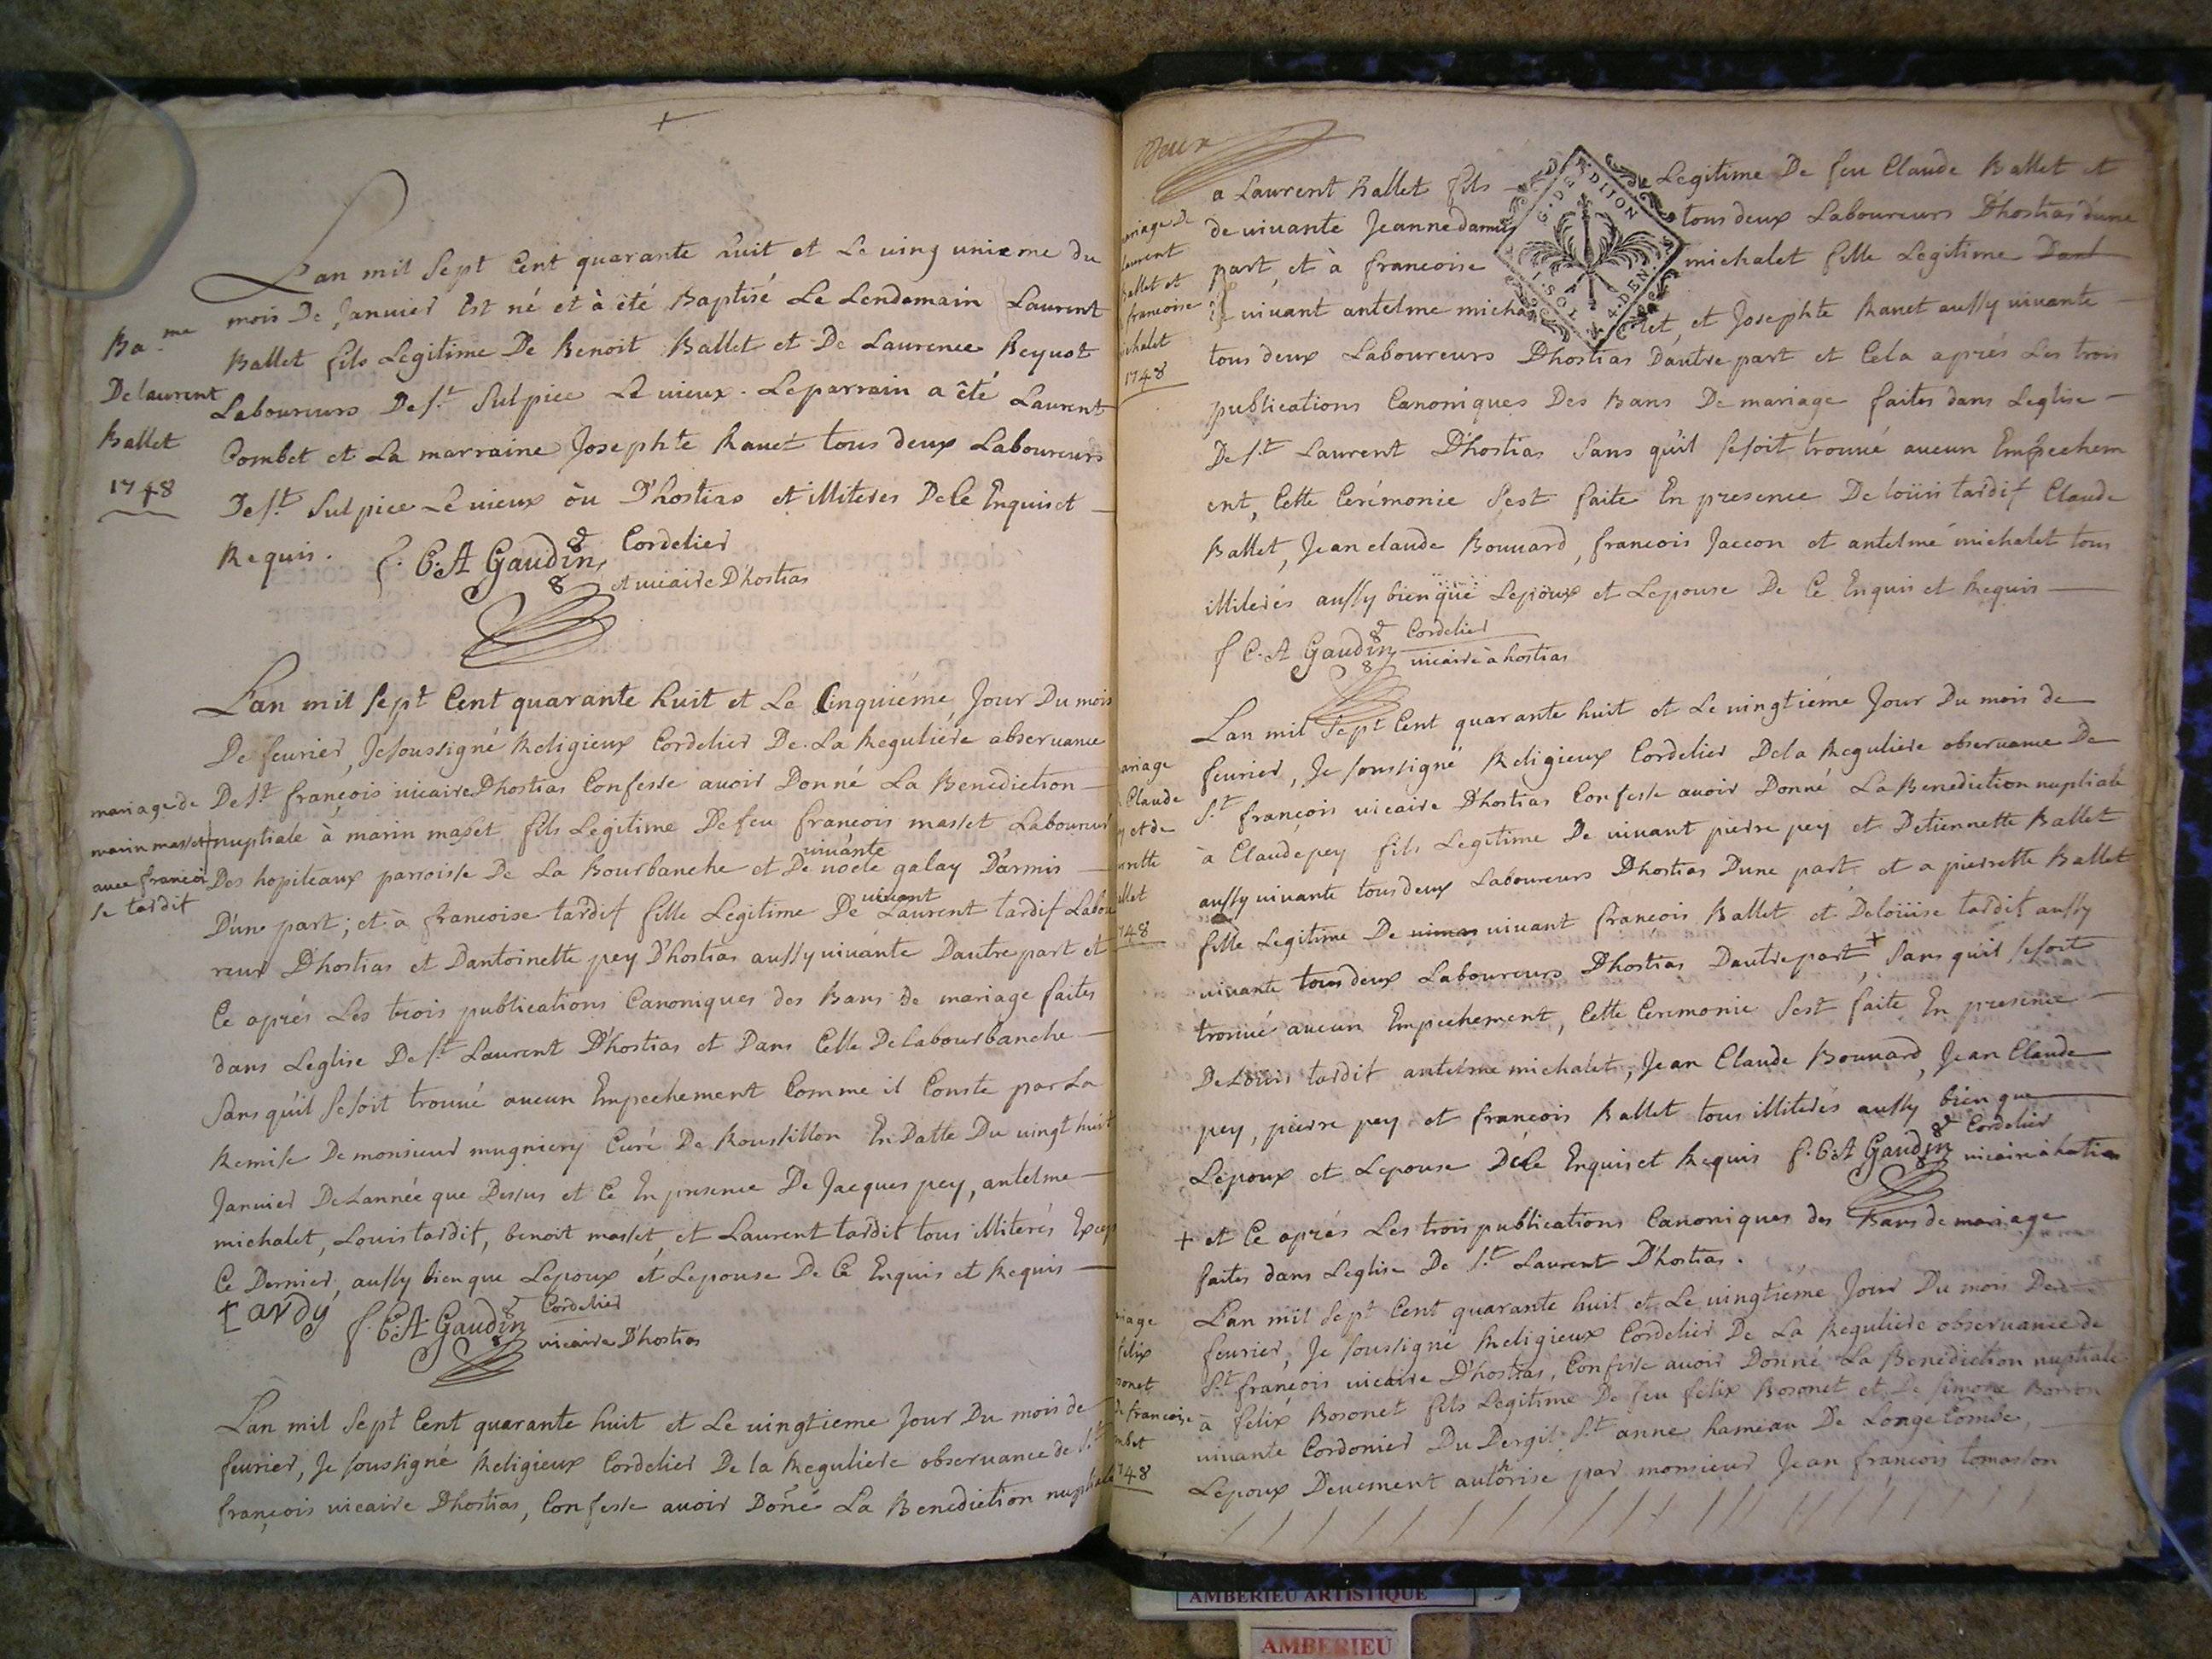 Lan mil Sept Cent quarante huit et Le ving unieme du
mois De Janvier Est né et à été Baptisé Le Lendemain Laurent
Ballet fils Legitime De Benoit Ballet et De Laurence Reynot
Laboureurs De St Sulpice Le vieux. Le parrain a êté Laurent
Combet et La marraine Josephte Ravet tous deux Laboureurs
De St Sulpice Le vieux òu D'hostias et illiteres De Ce Enquis et
Requis. f. C. A Gaudin, Cordelier
et vicaire D'hostias
Ba.me
De laurent
Ballet
1748
Lan mil sept Cent quarante huit et Le Cinquiéme Jour Du mois
De fevrier, Je soussigné Religieux Cordelier De La Reguliére observance
De St françois vicaire Dhostias Confesse avoir Donné La Benediction
nuptiale à marin masset fils Legitime De feu françois masset Laboureur
Des hopiteaux parroisse De La Bourbanche et De vivante noele galay D'armis
D'une part; et à francoise tardif fille Legitime De vivant Laurent tardif Labou
reur D'hostias et Dantoinette pey D'hostias aussy vivante Dautre part et
Ce aprés Les trois publications Canoniques des Bans de mariage faites
dans Leglise De St Laurent D'hostias et Dans Celle De labourbanche
Sans qu'il Se soit trouvé aucun Empechement Comme il Conste par La
Remise De monsieur mugniery Curé De Roussillon En Datte Du vingt huit
Janvier De Lannée que Dessus et Ce En presence De Jacques pey, antelme
michalet, Louis tardif, benoit masset, et Laurent tardif tous illiterés Excep
Ce Dernier, aussy bien que Lepoux et Lepouse De Ce Enquis et Requis
tardy f. C. A. Gaudin Cordelier
vicaire D'hostias
mariage de
marin masset
avec françoi
se tardif
Lan mil Sept Cent quarante huit et Le vingtieme Jour Du mois de
fevrier, Je soussigné Religieux Cordelier De la Reguliere observance de St
françois vicaire Dhostias, Confesse avoir Doñé La Benediction nuptiale
deux
a Laurent Ballet fils Legitime De feu Claude Ballet et
de vivante Jeanne damis tous deux Laboureurs D'hostias d'une
part, et à francoise michalet fille Legitime
De vivant antelme micha let, et Josephte Ravet aussy vivante
tous deux Laboureurs D'hostias Dautre part et Cela aprés Les trois
publications Canoniques Des Bans De mariage faites dans Leglise
De St Laurent D'hostias Sans qu'il se soit trouvé aucun Empechem
ent, Cette Cerémonie Sest faite En presence De loüis tardif Claude
Ballet, Jean claude Bouvard, francois Jaccon et antelme michalet tous
illiterés aussy bien que Lepoux et Lepouse De Ce Enquis et Requis
f C. A Gaudin Cordelier
vicaire à hostias
G. DE DIJON
ariage De
laurent
ballet et
francoise
ichalet
1748
Lan mil Sept Cent quarante huit et Le vingtiéme Jour Du mois de
fevrier, Je soussigné Religieux Cordelier De la Reguliere observance De
St françois vicaire D'hostias Confesse avoir Donné La Benediction nuptiale
à Claude pey fils Legitime De vivant pierre pey et Detiennette Ballet
aussy vivante tous deux Laboureurs D'hostias Dune part, et a pierrette Ballet
fille Legitime De vivant françois Ballet et De loüise tardif aussy
vivante tous deux Laboureurs D'hostias Dautre part +, Sans qu'il se soit
trouvé aucun Empechement, Cette Ceremonie Sest faite En presence
De Loüis tardif antelme michalet, Jean Claude Bouvard, Jean Claude
pey, pierre pey et françois Ballet tous illiterés aussy bien que
Lepoux et Lepouse De Ce Enquis et Requis f. C. A Gaudin Cordelier
vicaire à hostias
+ et Ce aprés Les trois publications Canoniques des Bans de mariage
faites dans Leglise De St Laurent D'hostias.
ariage
Claude
y et de
rrette
allet
748
Lan mil Sept Cent quarante huit et Le vingtieme Jour Du mois De
fevrier, Je soussigné Religieux Cordelier De La Reguliere observance de
St françois vicaire D'hostias, Confesse avoir Donné La Benediction nuptiale
à felix Bosonet fils Legitime De feu felix Bosonet et De simone Borron
vivante Cordonier Du Dergit St anne hameau De Longe Combe,
Lepoux Deuement authorisé par monsieur Jean françois tomasson
riage
felix
sonet
De francoise
mbet
748
AMBERIEU ARTISTIQUE
AMBERIEU